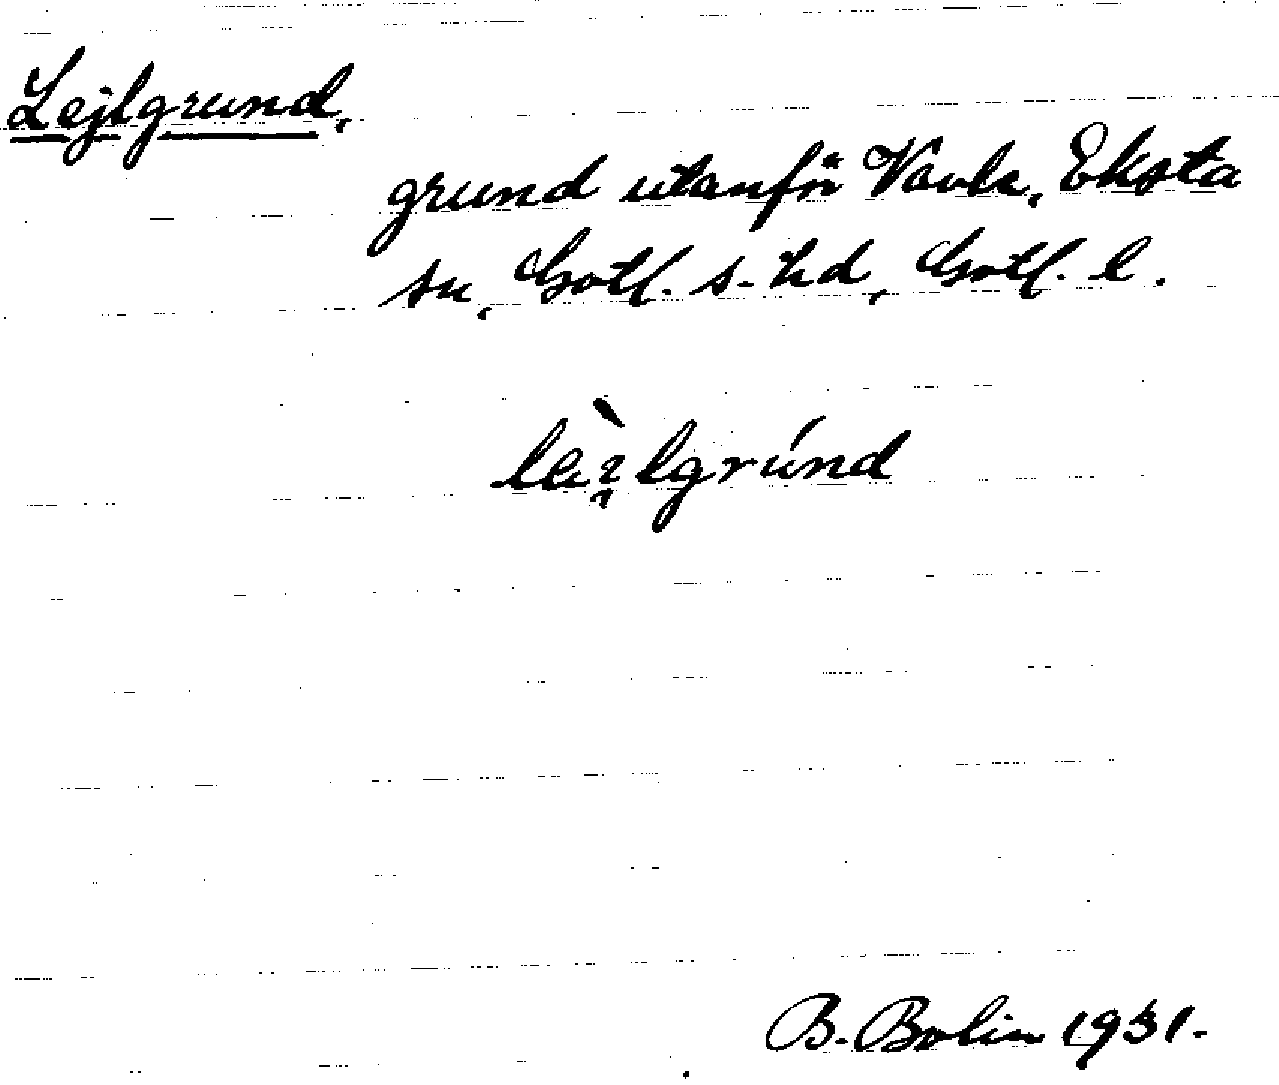 Lejlgrund,
grund utanför Vavle, Eksta
sn, Gotl. s. hd, Gotl. l.
lgrúnd
B. Bolin 1931.